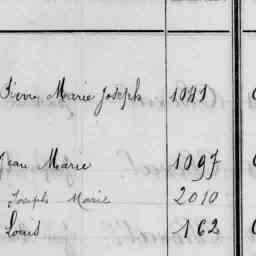 Pierre Marie Joseph 1041
Jean Marie 1097
Joseph Marie 2010
Louis 162